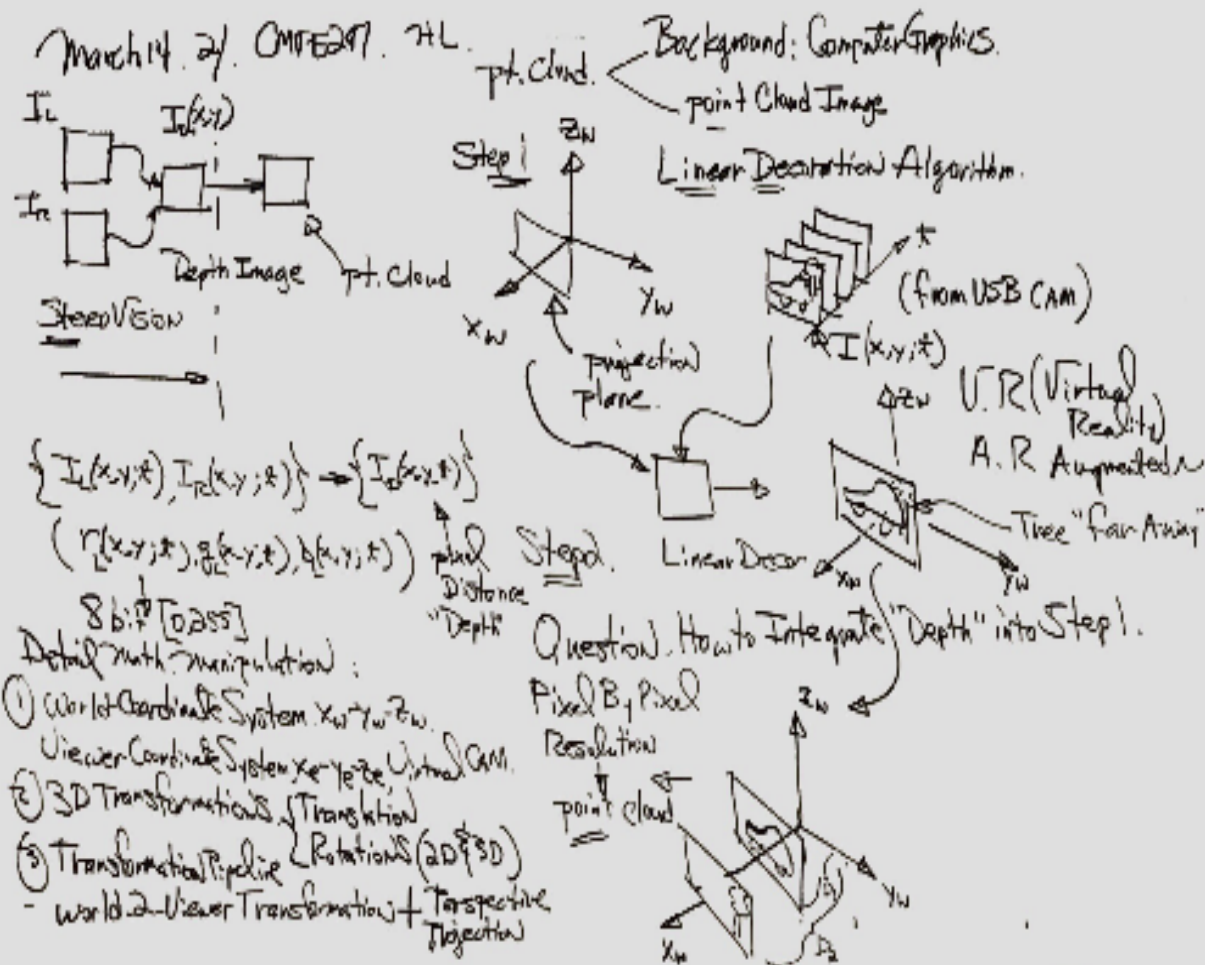 March 14. 24. CMPE297. HL.
Background: Computer Graphics.
pt. Cloud.
point Cloud Image
I_L
I_R
Depth Image
pt. Cloud
Stereo Vision
Step 1
Z_W
Y_W
X_W
projection
plane.
Linear Decoration Algorithm.
t
(from USB CAM)
I(x,y;t)
V.R (Virtual
Reality)
A.R Augmented
Z_W
Tree "far Away"
X_W
Y_W
Linear Decor
{I_L(x,y;t), I_R(x,y;t)} → {I_D(x,y,t)}
(r_L(x,y;t), g_L(x,y;t), b_L(x,y;t))
pixel
Distance
"Depth"
8 bit [0,255]
Step 2.
Question. How to Integrate "Depth" into Step 1.
Pixel By Pixel
Resolution
point Cloud
Z_W
Y_W
X_W
D_2
Detail math manipulation:
① World Coordinate System X_W-Y_W-Z_W.
Viewer Coordinate System X_e-Y_e-Z_e, Virtual CAM.
② 3D Transformations { Translation
Rotations (2D & 3D)
③ Transformation Pipeline
- World-2-Viewer Transformation + Perspective
Projection